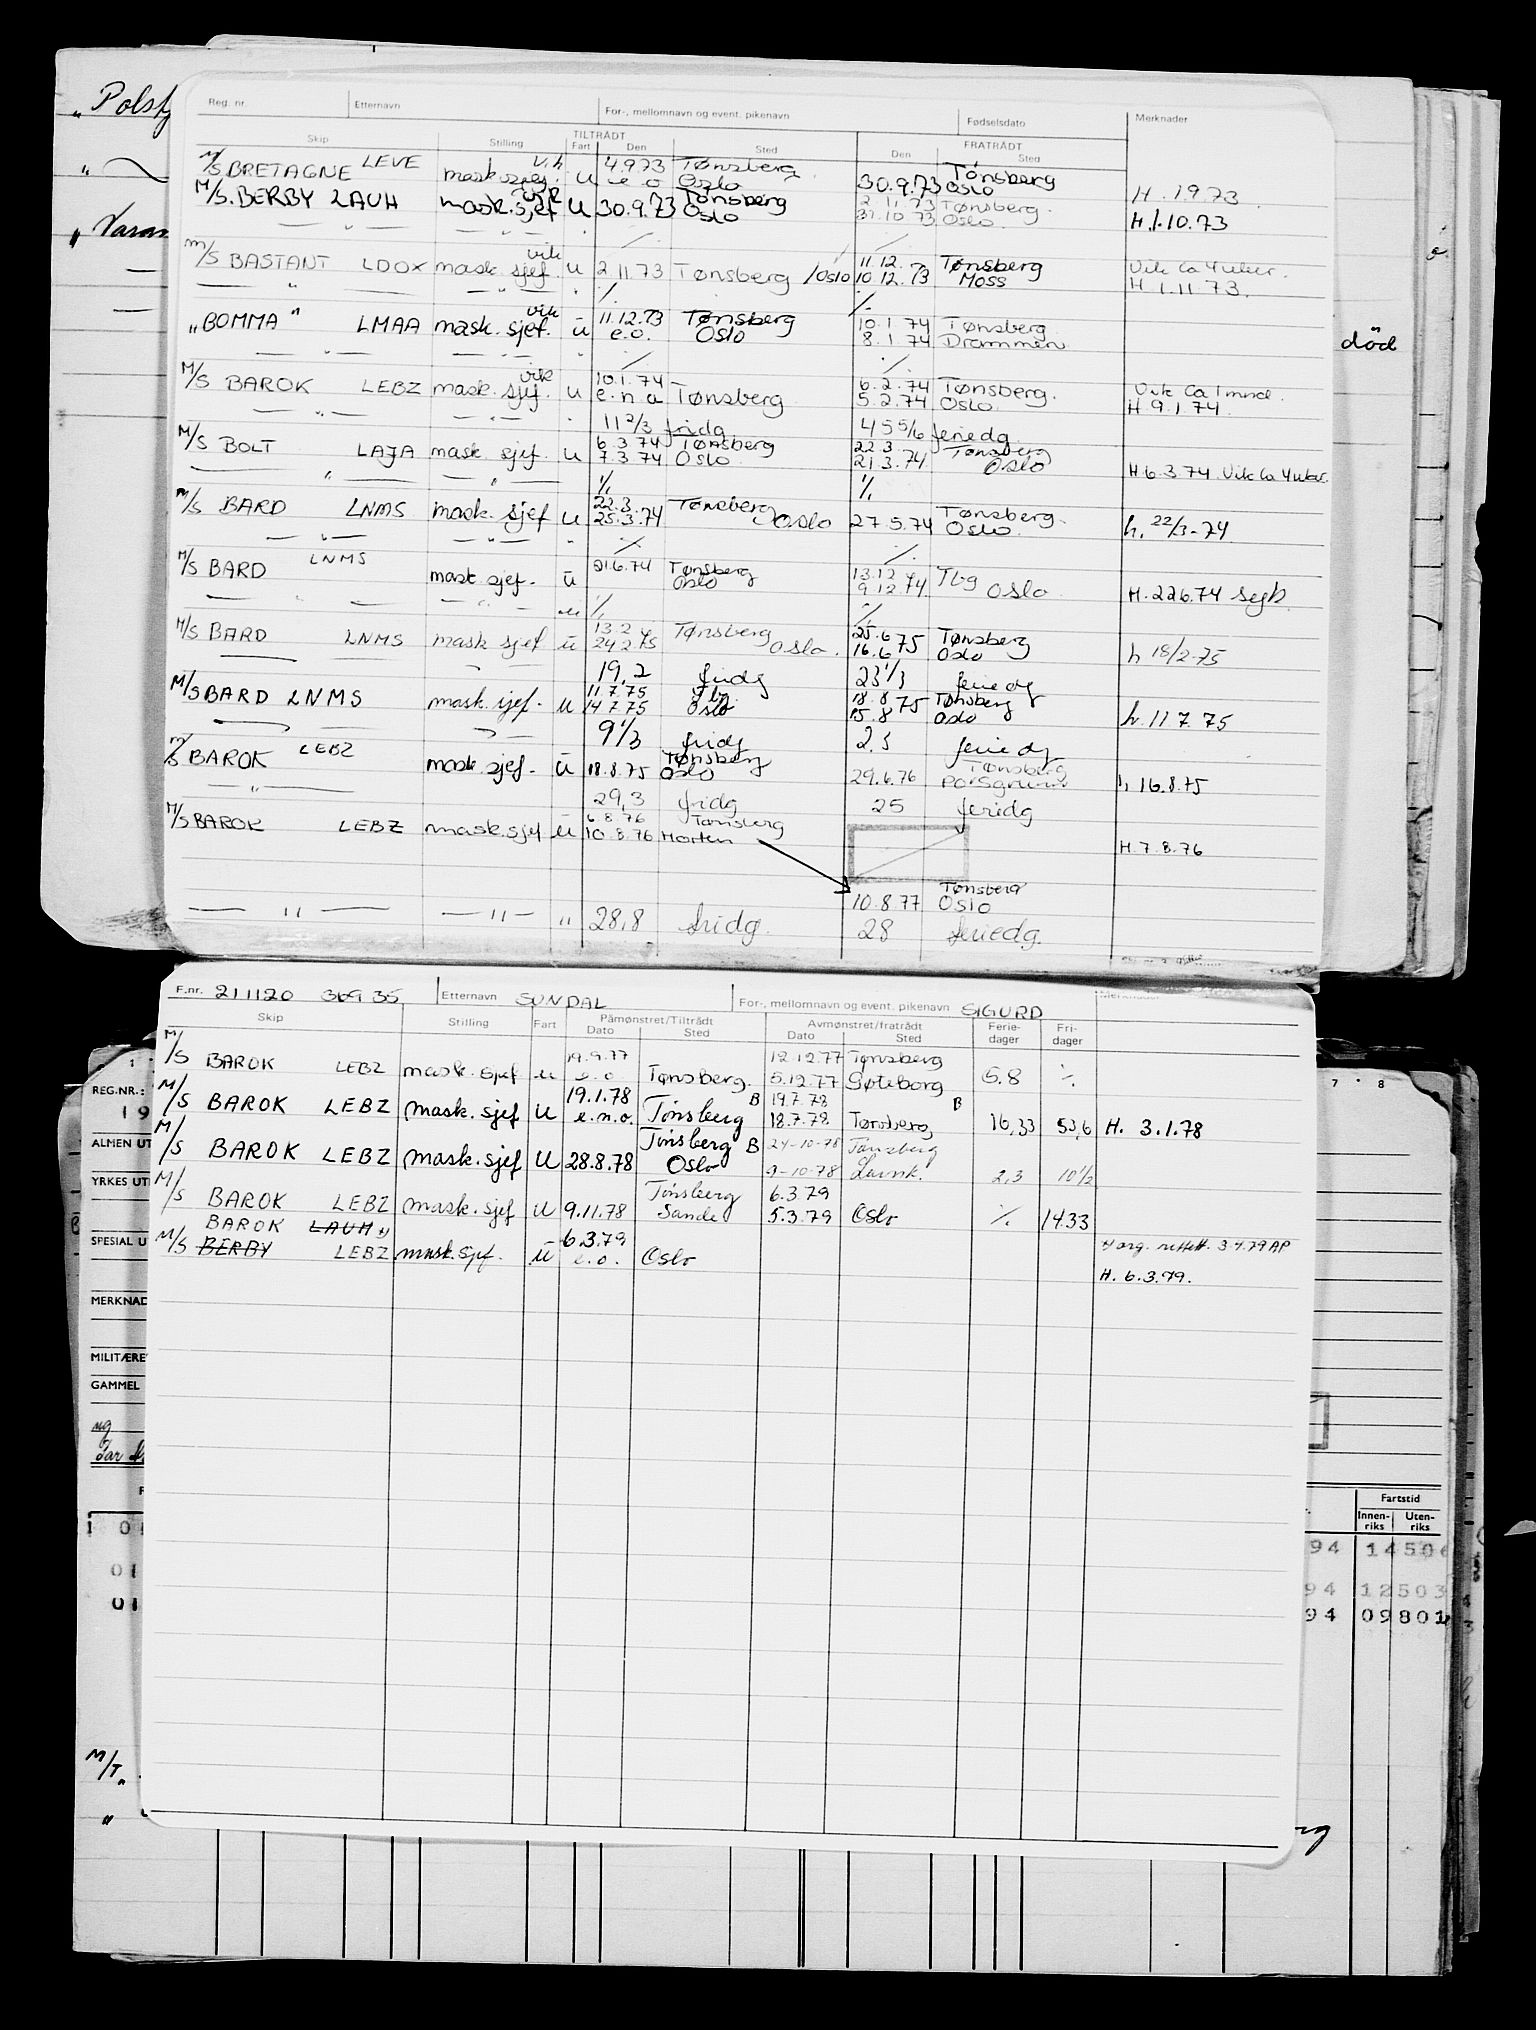 Reg. nr. Etternavn For-, mellomnavn og event. pikenavn Fødselsdato Merknader
Skip Stilling Fart TILTRÅDT Den Sted FRATRÅDT Den Sted
M/S BRETAGNE LEVE mask.sjef. u 4.9.73 Tønsberg Tønsberg
e o Oslo 30.9.73 Oslo H. 1.9.73
M/S. BERBY LAUH mask.sjef vik u 30.9.73 Tønsberg Oslo 2.11.73 Tønsberg.
31.10.73 Oslo. H.1.10.73
M/S BASTANT LDOX mask. sjef. vik u 2.11.73 Tønsberg /Oslo 11.12. Tønsberg Vik ca 4 uker.
10.12.73 Moss H 1.11.73.
" BOMMA " LMAA mask. sjef. vik u 11.12.73 Tønsberg 10.1.74 Tønsberg
e.o. Oslo 8.1.74 Drammen
M/S BAROK LEBZ mask. sjef. vik u 10.1.74 6.2.74 Tønsberg. Vik Ca 1 mnd.
e.n.a Tønsberg 5.2.74 Oslo. H 9.1.74.
11 2/3 fridg 45 5/6 feriedg.
M/S BOLT LAJA mask. sjef. u 6.3.74 Tønsberg 22.3. Tønsberg
7.3.74 Oslo 21.3.74. Oslo H.6.3.74. Vik Ca 4 uker.
M/S BARD LNMS mask. sjef u 22.3. Tønsberg Tønsberg.
25.3.74 Oslo 27.5.74 Oslo. h. 22/3-74
M/S BARD LNMS mask. sjef. u 21.6.74 Tønsberg 13.12 Tbg
Oslo 9.12.74 Oslo H. 22.6.74
M/S BARD LNMS mask sjef u 13.2 Tønsberg 25.6 Tønsberg
24.2.75 Oslo. 16.6.75 Oslo h 18/2-75
19,2 fridg 23 1/3 feriedg
M/S BARD LNMS mask. sjef. u 11.7.75 Tbg. 18.8.75 Tønsberg
14.7.75 Oslo 15.8 Oslo h. 11.7.75
9 1/3 fridg 2,5 feriedg
M/S BAROK LEBZ mask sjef. u 18.8.75 Tønsberg Tønsberg
Oslo 29.6.76 Porsgrunn h 16.8.75
29,3 fridg 25 feridg
M/S BAROK LEBZ mask.sjef u 6.8.76 Tønsberg
10.8.76 Horten H. 7.8.76
Tønsberg
10.8.77 Oslo
" " " 28,8 fridg. 28 feriedg.
F.nr. 211120 36935 Etternavn SUNDAL For-, mellomnavn og event. pikenavn SIGURD Merknader
Skip Stilling Fart Påmønstret/Tiltrådt Dato Sted Avmønstret/fratrådt Dato Sted Ferie-dager Fri-dager
M/S BAROK LEBZ mask. sjef u 19.9.77 12.12.77 Tønsberg
e.o. Tønsberg. 5.12.77 Gøteborg 5.8 %
M/S BAROK LEBZ mask. sjef u 19.1.78 B 19.7.78 B
e.n.o. Tønsberg 18.7.78 Tønsberg 16,33 53,6 H. 3.1.78
M/S BAROK LEBZ mask.sjef u 28.8.78 Tønsberg B 24-10-78 Tønsberg
Oslo 9-10-78 Larvik. 2,3 10 1/2
M/S BAROK LEBZ mask. sjef u 9.11.78 Tønsberg 6.3.79
Sande 5.3.79 Oslo % 14.33
BAROK LAUH 6.3.79
M/S BERBY LEBZ mask.sjef. u e.o. Oslo 3.4.79 AP
H. 6.3.79.
" Polst
"
"
død
REG.NR.:
19
ALMEN UT
YRKES UT
SPESIAL U
MERKNAD
MILITÆRE
GAMMEL
7 8
Fartstid
Innen-riks Uten-riks
94 14506
94 12503
94 09801
1 01
01
01
M/T "
"